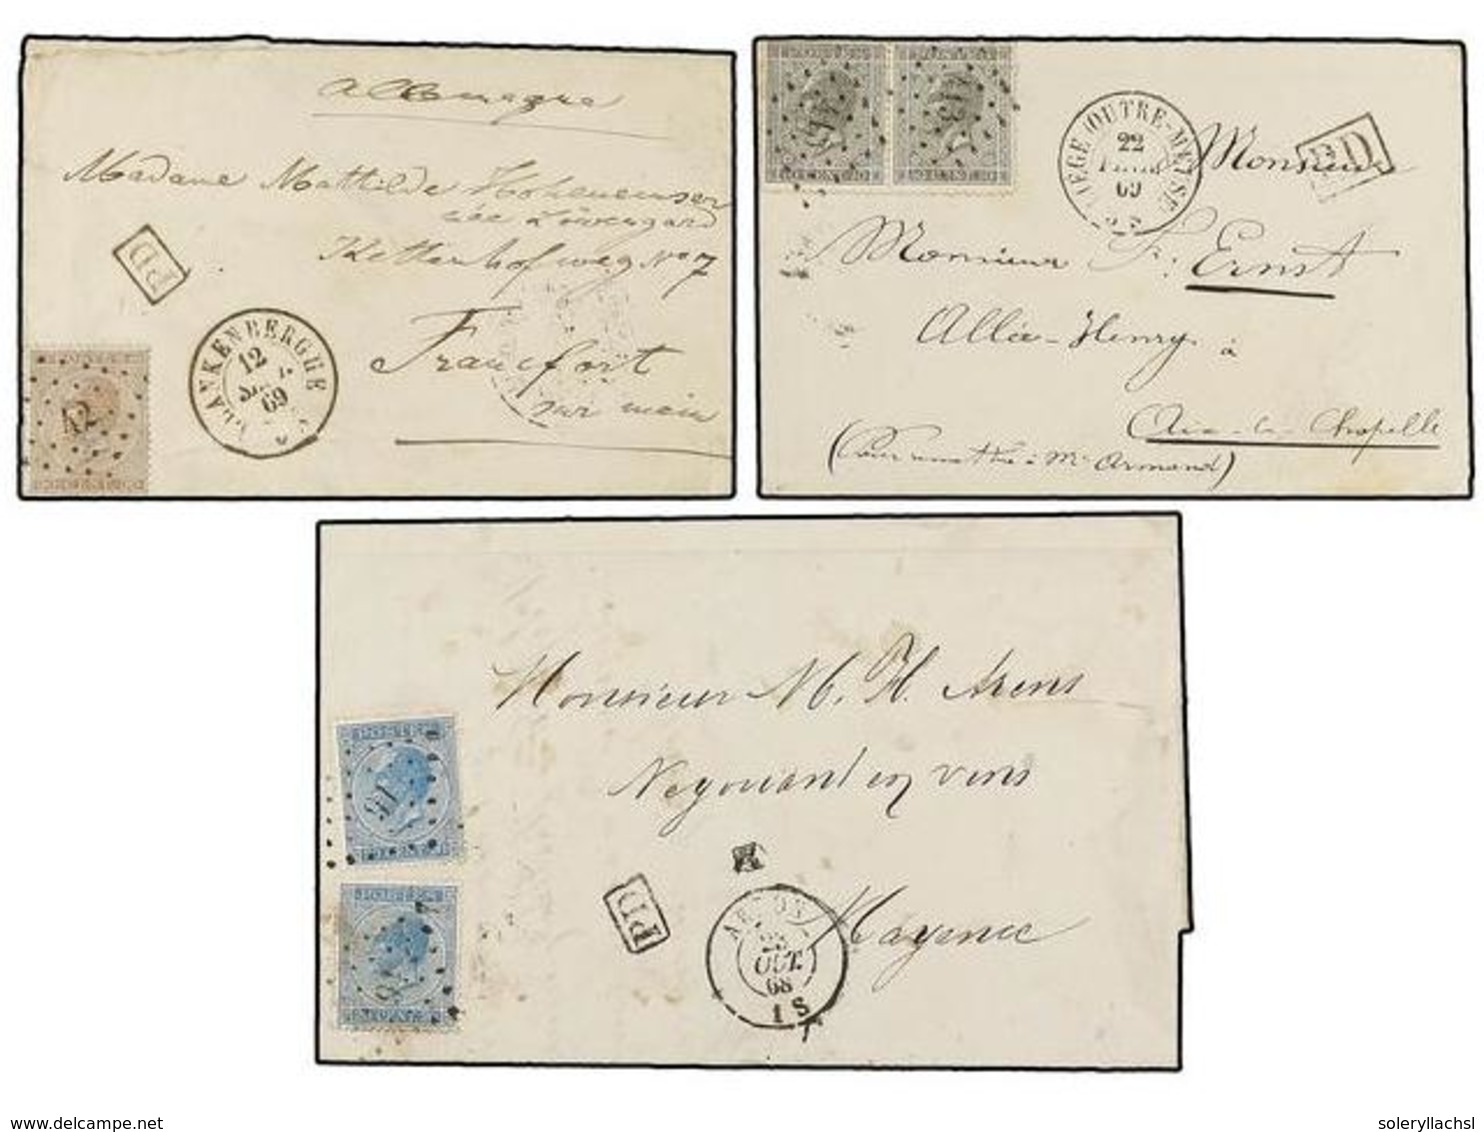 Allemagne
Madame Mathilde Hohenemser
née Löwengard
Kettenhofweg No 7
Francfort
sur mein
PD
BLANKENBERGHE
12
69
42
LIEGE (OUTRE-MEUSE)
22
69
PD
Monsieur
Monsieur Fr: Ernst
Allée-Henry à
Aix-la-Chapelle
(Pour remettre à Mr Armand)
POSTES
15
Monsieur M. H. Arens
Negociant en vins
Mayence
PD
ARLON
23
OCT.
68
1 S
delcampe.net
soleryllachsl